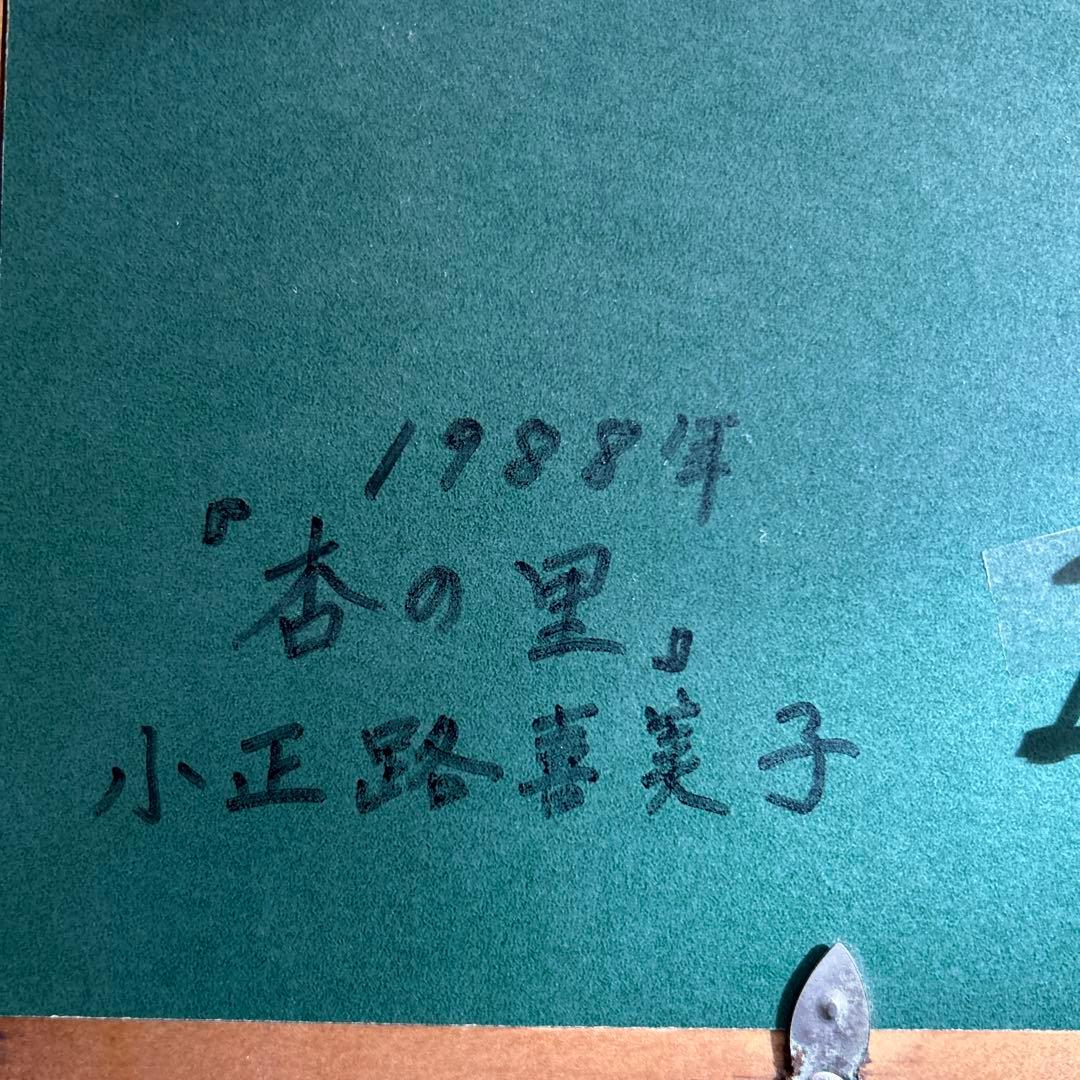 1988年
『杏の里』
小正路喜美子